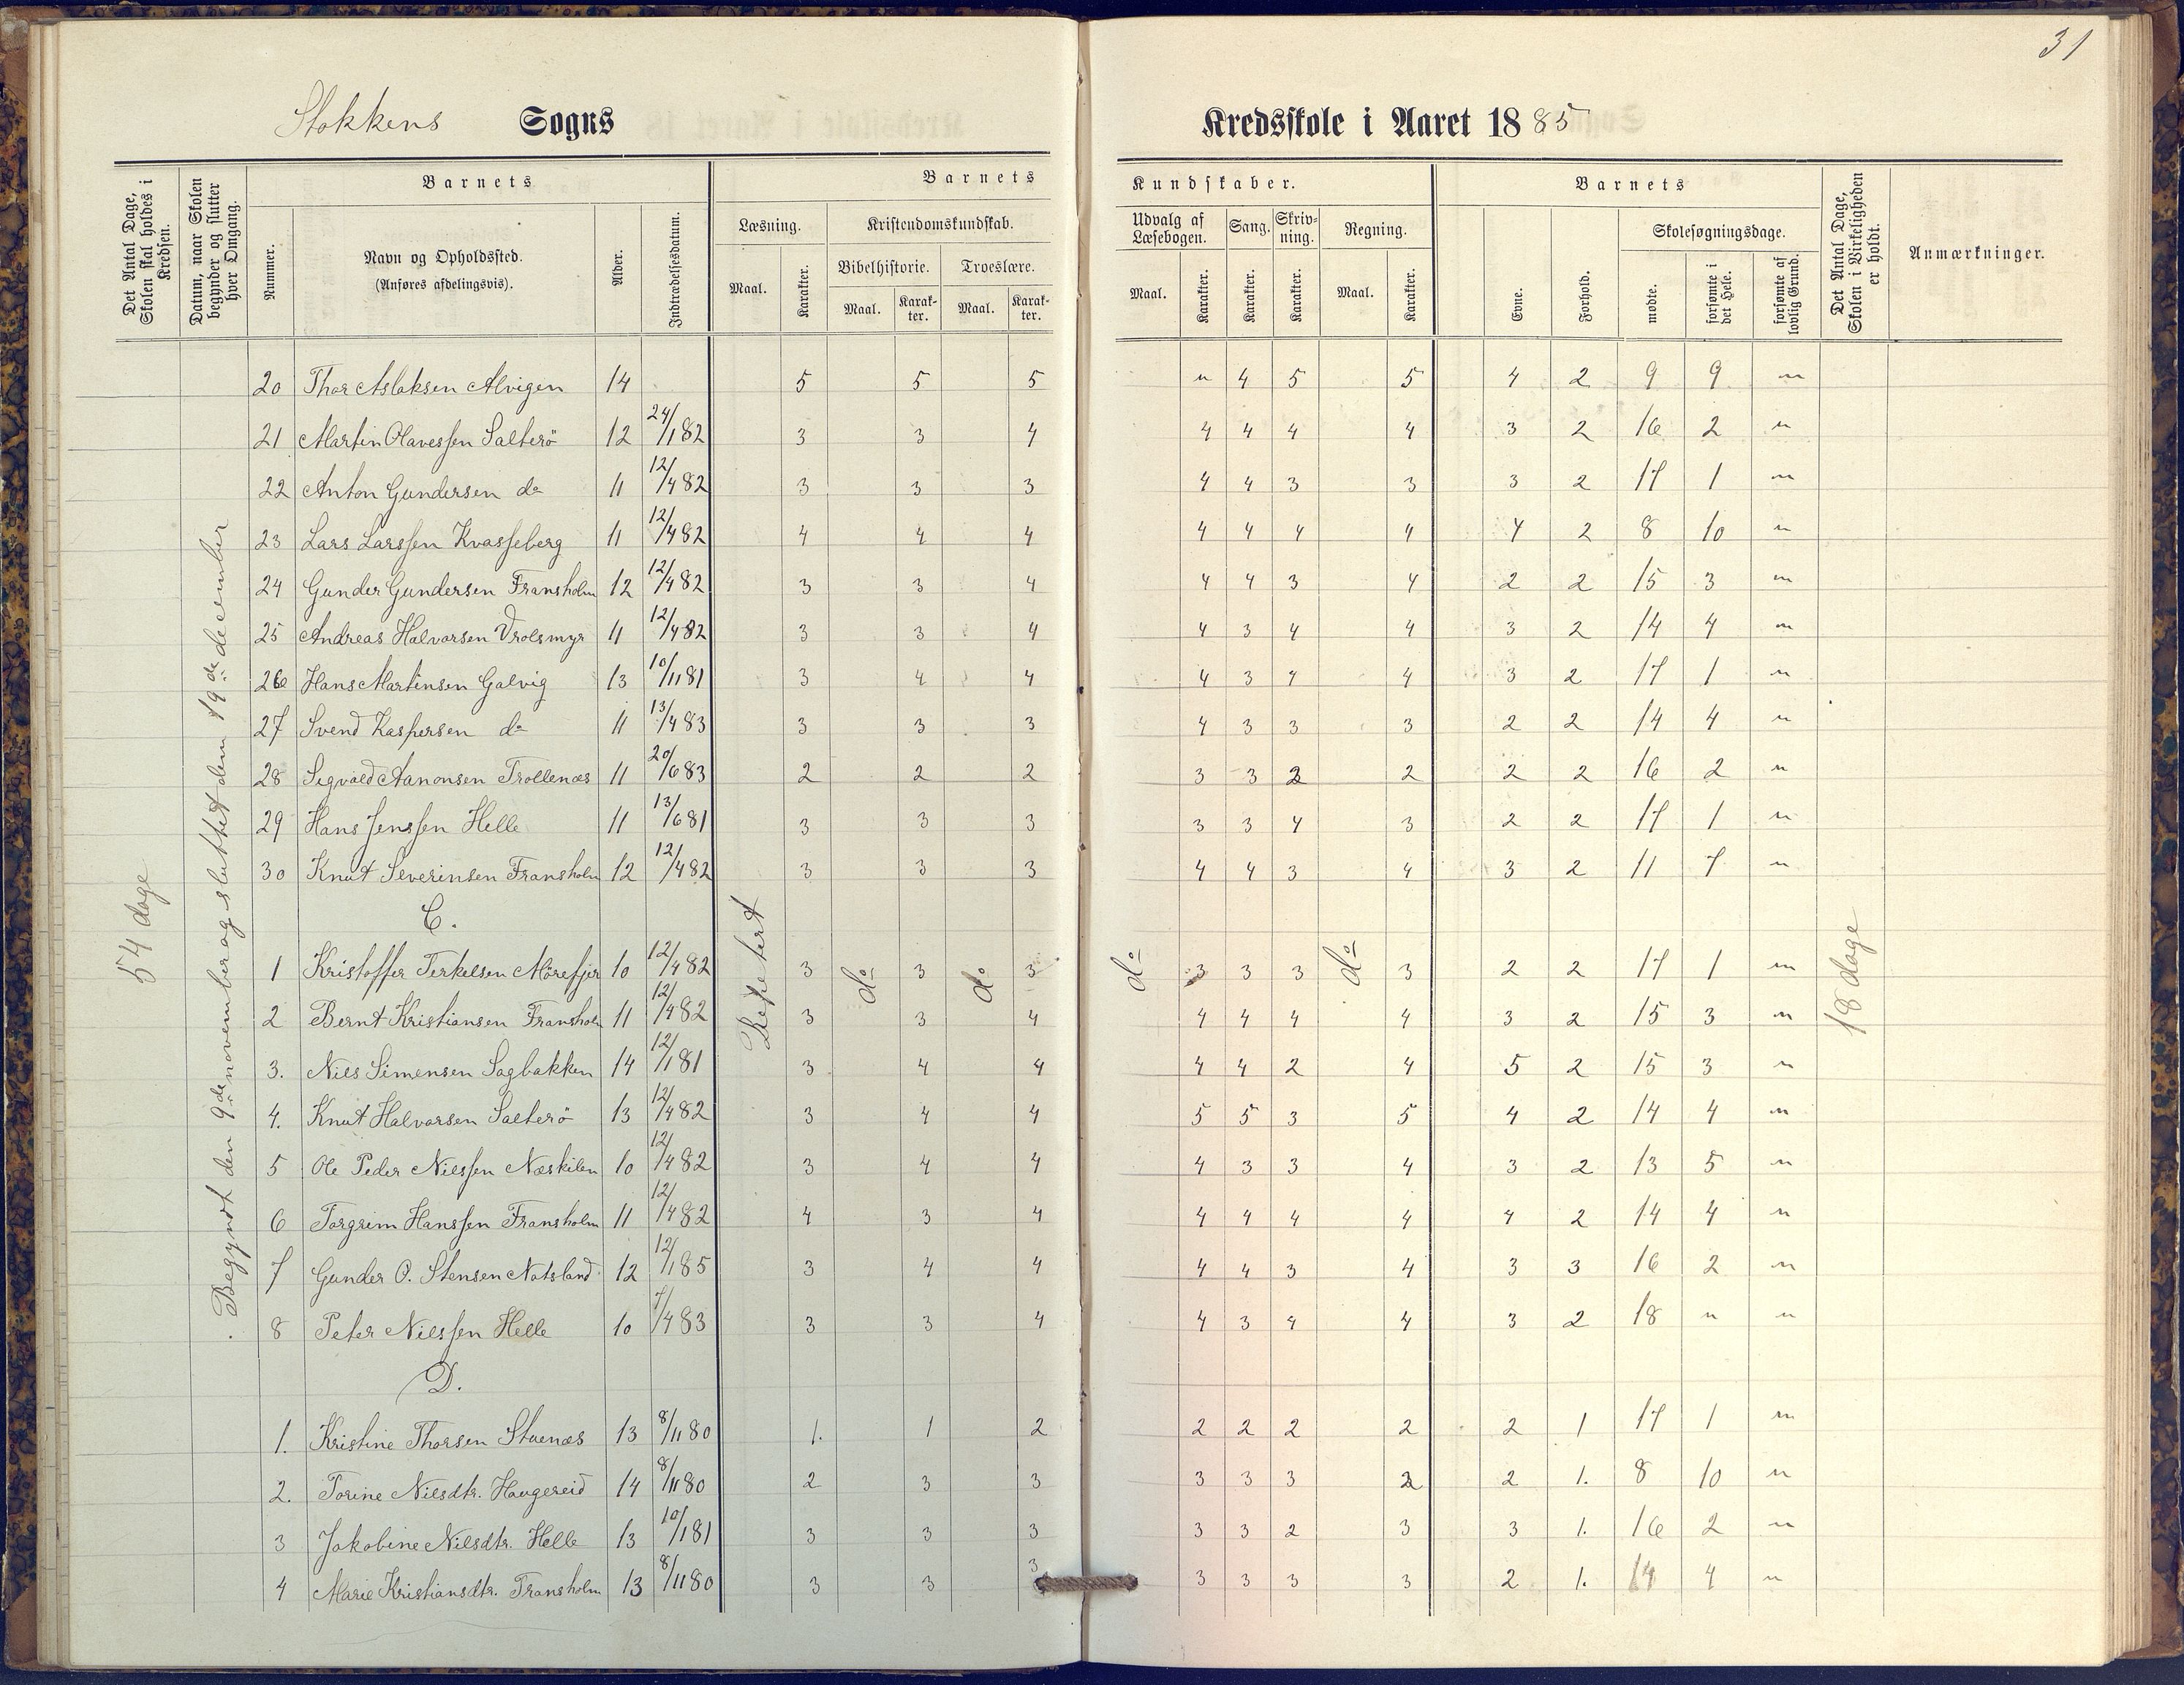 31
Stokkens Sogns Kredsskole i Aaret 1885
Det Antal Dage, Skolen skal holdes i Kredsen.
Datum, naar Skolen begynder og slutter hver Omgang.
Barnets
Nummer.
Navn og Opholdssted.
(Anføres afdelingsvis).
Alder.
Indtrædelsesdatum.
Barnets Kundskaber.
Læsning.
Maal.
Karakter.
Kristendomskundskab.
Bibelhistorie.
Maal.
Karakter.
Troeslære.
Maal.
Karakter.
Udvalg af Læsebogen.
Maal.
Karakter.
Sang.
Karakter.
Skrivning.
Karakter.
Regning.
Maal.
Karakter.
Barnets
Evne.
Forhold.
Skolesøgningsdage.
mødte.
forsømte i det Hele.
forsømte af lovlig Grund.
Det Antal Dage, Skolen i Virkeligheden er holdt.
Anmærkninger.
54 dage
Begyndt den 9de november og sluttet den 19de december
Repetert do do do do
18 dage
20 Thor Aslaksen Alvigen 14 5 5 5 " 4 5 5 4 2 9 9 "
21 Martin Olavessen Salterö 12 24/1 82 3 3 4 4 4 4 4 3 2 16 2 "
22 Anton Gundersen do 11 12/4 82 3 3 3 4 4 3 3 3 2 17 1 "
23 Lars Larssen Kvasseberg 11 12/4 82 4 4 4 4 4 4 4 4 2 8 10 "
24 Gunder Gundersen Fransholm 12 12/4 82 3 3 4 4 4 3 4 2 2 15 3 "
25 Andreas Halvorsen Vrolsmyr 11 12/4 82 3 3 4 4 3 4 4 3 2 14 4 "
26 Hans Martinsen Galvig 13 10/11 81 3 4 4 4 3 4 4 3 2 17 1 "
27 Svend Kaspersen do 11 13/4 83 3 3 3 4 3 3 3 2 2 14 4 "
28 Sigvald Aanonsen Trollenæs 11 20/6 83 2 2 2 3 3 2 2 2 2 16 2 "
29 Hans Jenssen Helle 11 13/6 81 3 3 3 3 3 4 3 2 2 17 1 "
30 Knut Severinsen Fransholm 12 12/4 82 3 3 3 4 4 3 4 3 2 11 7 "
C.
1 Kristoffer Terkelsen Mörefjær 10 12/4 82 3 3 3 3 3 3 3 2 2 17 1 "
2 Bernt Kristiansen Fransholm 11 12/4 82 3 3 4 4 4 4 4 3 2 15 3 "
3. Niels Simensen Sagbakken 14 12/1 81 3 4 4 4 4 2 4 5 2 15 3 "
4. Knut Halvorsen Salterö 13 12/4 82 3 4 4 5 5 3 5 4 2 14 4 "
5 Ole Peder Nielssen Næskilen 10 12/4 82 3 4 4 4 3 3 4 3 2 13 5 "
6 Torgrim Hanssen Fransholm 11 12/4 82 4 3 4 4 4 4 4 4 2 14 4 "
7 Gunder O. Stensen Natsland 12 12/1 85 3 4 4 4 4 3 4 3 3 16 2 "
8 Peter Nielssen Helle 10 7/4 83 3 3 4 4 3 4 4 3 2 18 " "
D.
1. Kristine Thorsen Stuenæs 13 8/11 80 1. 1 2 2 2 2 2 2 1 17 1 "
2. Torine Nielsdtr. Haugereid 14 8/11 80 2 3 3 3 3 3 2 2 1. 8 10 "
3 Jakobine Nielsdtr. Helle 13 10/1 81 3 3 3 3 3 2 3 3 1. 16 2 "
4 Marie Kristiansdtr. Fransholm 13 8/11 80 3 3 3 3 3 3 3 2 1. 14 4 "